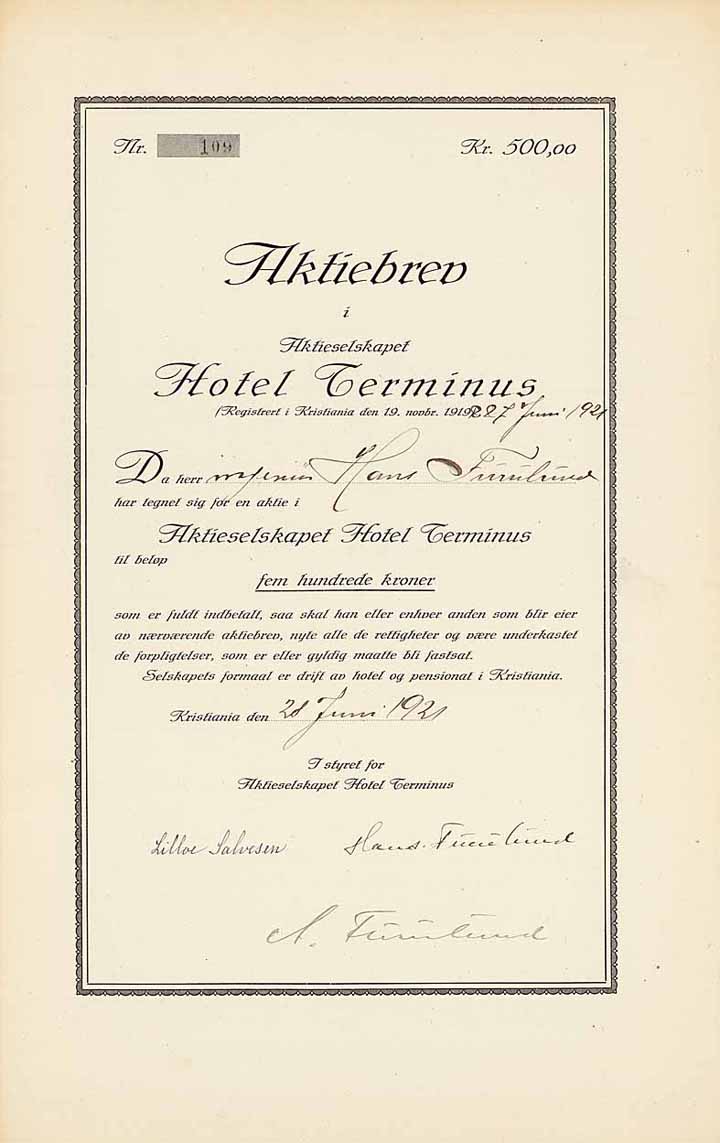 Nr. 109 Kr. 500,00
Aktiebrev
i
Aktieselskapet
Hotel Terminus
(Registrert i Kristiania den 19. novbr. 1919 & 27 Juni 1921
Da herr ingeniør Hans Furulund
har tegnet sig for en aktie i
Aktieselskapet Hotel Terminus
til beløp
fem hundrede kroner
som er fuldt indbetalt, saa skal han eller enhver anden som blir eier
av nærværende aktiebrev, nyte alle de rettigheter og være underkastet
de forpligtelser, som er eller gyldig maatte bli fastsat.
Selskapets formaal er drift av hotel og pensionat i Kristiania.
Kristiania den 28 Juni 1921
I styret for
Aktieselskapet Hotel Terminus
Lilloe Salvesen Hans Furulund
A. Furulund